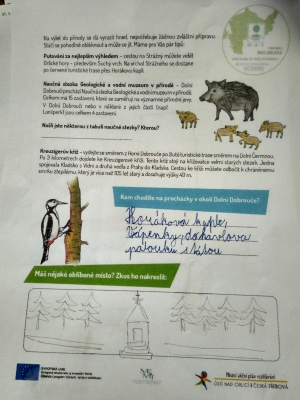 Na výlet do přírody se dá vyrazit hned, nepotřebuje žádnou zvláštní přípravu.
Stačí se pohodlně obléknout a může se jít. Máme pro Vás pár tipů:
Putování za nejlepším výhledem – cestou na Strážný můžete vidět
Orlické hory – především Suchý vrch. Na vrchol Strážného se dostanete
po červené turistické trase přes Horákovu kapli.
Naučná stezka Geologické a vodní muzeum v přírodě – Dolní
Dobrouč prochází Naučná stezka Geologické a vodní muzeum v přírodě.
Celkem má 15 zastavení, které se zaměřují na významné přírodní jevy.
V Dolní Dobrouči nebo v některé z jejích částí (např.
Lanšperk) jsou celkem 4 zastavení.
Našli jste některou z tabulí naučné stezky? Kterou?
Kreuzigerův kříž – vydejte se směrem z Horní Dobrouče po žluté turistické trase směrem na Dolní Čermnou.
Po 3 kilometrech dojdete ke Kreuzigerově kříži. Tento kříž stojí na křižovatce velmi starých stezek. Jedna
spojovala Kladsko s Vídní a druhá vedla z Prahy do Kladska. Cestou ke kříži můžete odbočit k chráněnému
smrku ztepilému, který je více než 105 let starý a dosahuje výšky 40 m.
Kam chodíte na procházky v okolí Dolní Dobrouče?
Horákova kaple,
Vápenky,
Máš nějaké oblíbené místo? Zkus ho nakreslit:
EVROPSKÁ UNIE
Místní akční plán vzdělávání
ÚSTÍ NAD ORLICÍ & ČESKÁ TŘEBOVÁ